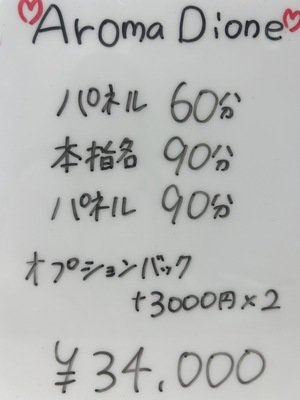 Aroma Dione
パネル 60分
本指名 90分
パネル 90分
オプションバック
+3000円×2
¥34,000